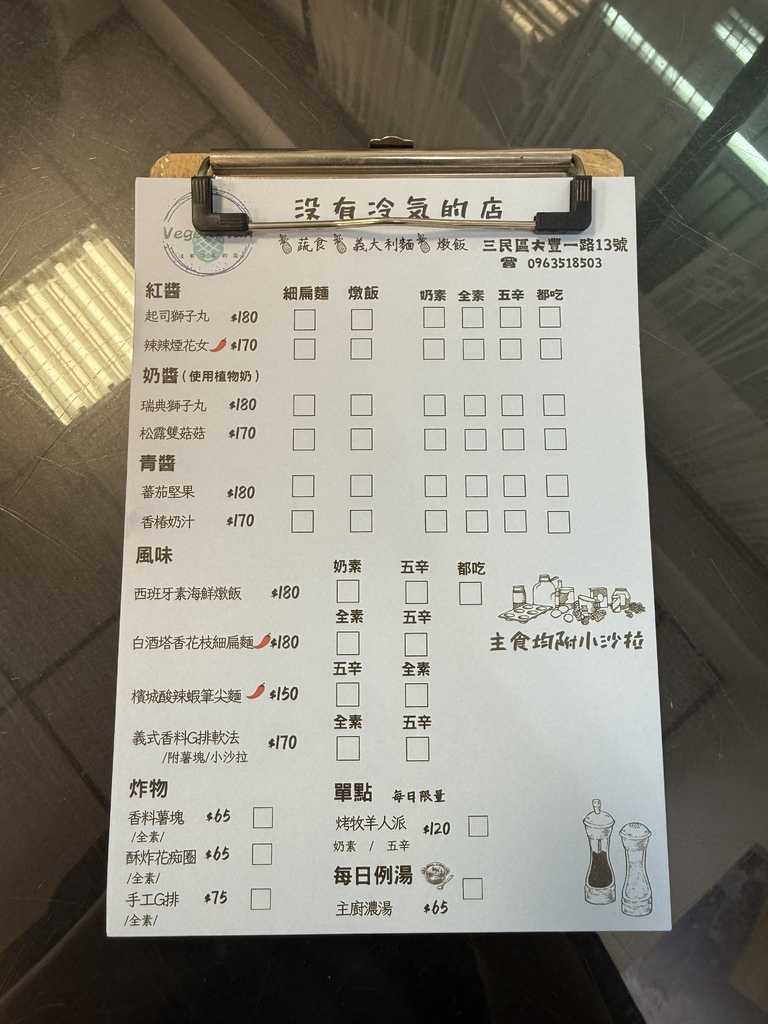 没有冷氣的店
蔬食 義大利麵 燉飯 三民區大豐一路13號
0963518503
紅醬 細扁麵 燉飯 奶素 全素 五辛 都吃
起司獅子丸 $180
辣辣煙花女 $170
奶醬(使用植物奶)
瑞典獅子丸 $180
松露雙菇菇 $170
青醬
蕃茄堅果 $180
香椿奶汁 $170
風味 奶素 五辛 都吃
西班牙素海鮮燉飯 $180
全素 五辛
白酒塔香花枝細扁麵 $180
主食均附小沙拉
五辛 全素
檳城酸辣蝦筆尖麵 $150
全素 五辛
義式香料G排軟法 $170
/附薯塊/小沙拉
炸物
香料薯塊 $65
/全素/
酥炸花痴圈 $65
/全素/
手工G排 $75
/全素/
單點 每日限量
烤牧羊人派 $120
奶素 / 五辛
每日例湯
主廚濃湯 $65